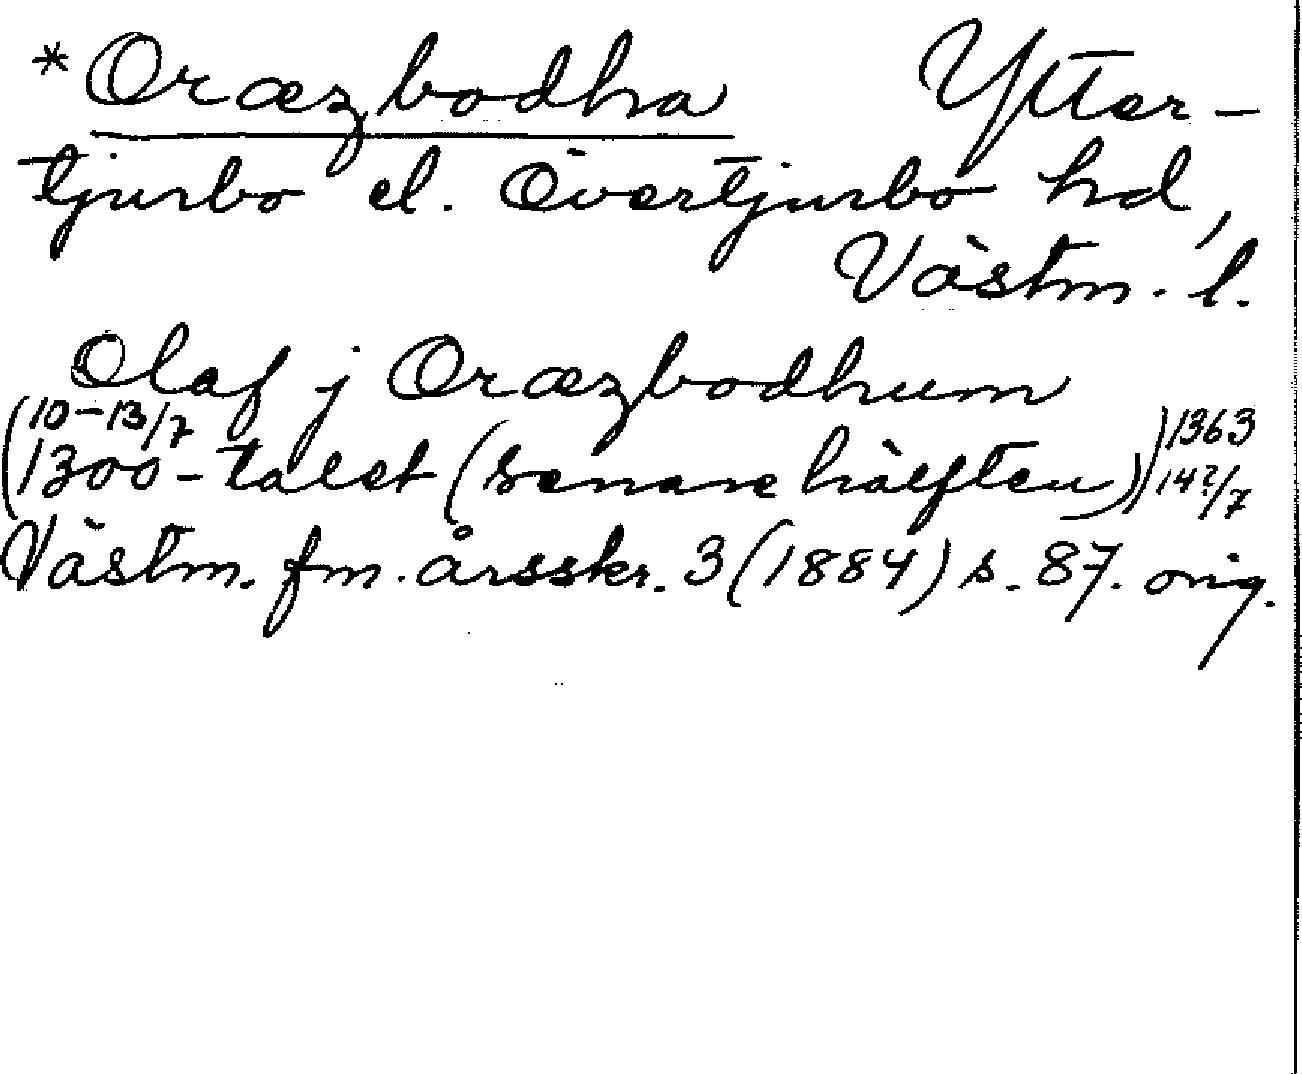 *Oræzbodha Ytter-
tjurbo el. Övertjurbo hd,
Västm. l.
Olaf j Oræzbodhum
(10-13/7 1363
1300-talet (senare hälften)) 14?/7
Västm. fm. årsskr. 3 (1884) s. 87. orig.